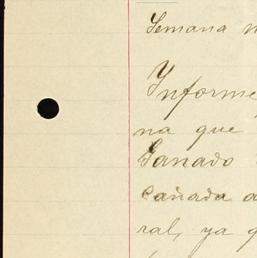 Semana
Informe
na que
Ganado
cañada a
ral, ya q